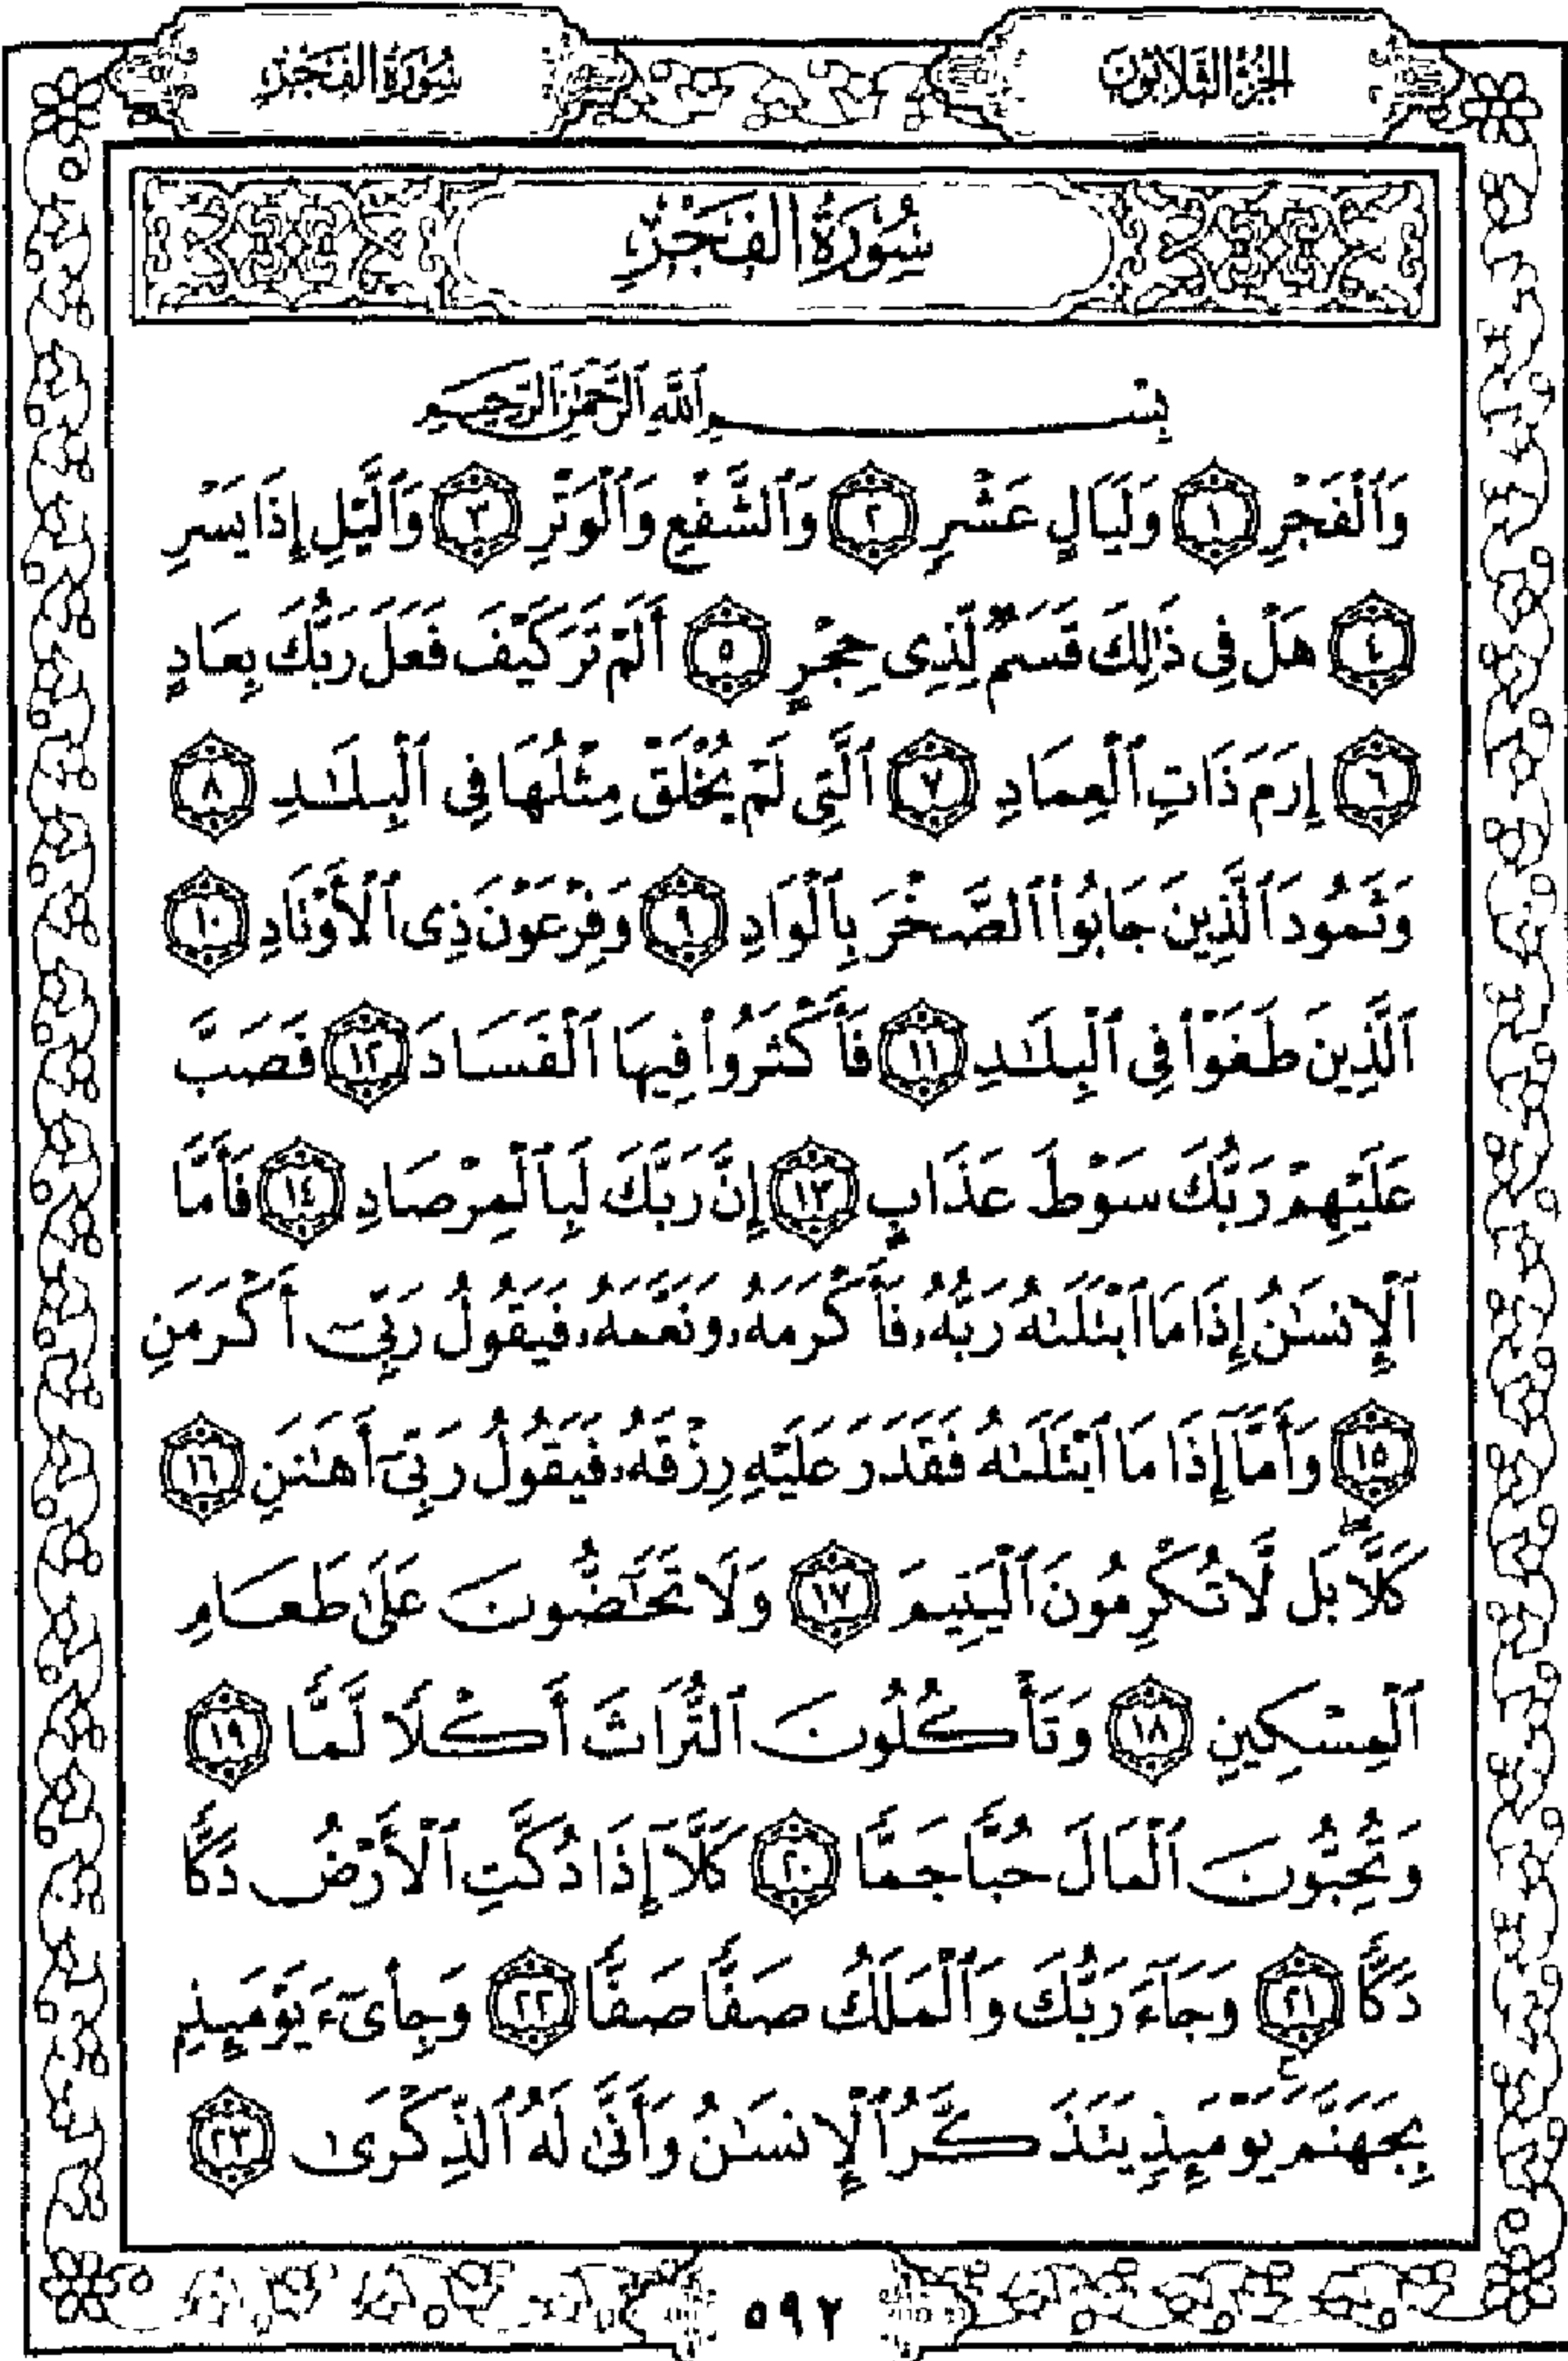 الجزء الثلاثون
سورة الفجر
سُورَةُ الفَجْرِ
بِسْمِ ٱللَّهِ ٱلرَّحْمَٰنِ ٱلرَّحِيمِ
وَٱلْفَجْرِ ١ وَلَيَالٍ عَشْرٍ ٢ وَٱلشَّفْعِ وَٱلْوَتْرِ ٣ وَٱلَّيْلِ إِذَا يَسْرِ
٤ هَلْ فِى ذَٰلِكَ قَسَمٌ لِّذِى حِجْرٍ ٥ أَلَمْ تَرَ كَيْفَ فَعَلَ رَبُّكَ بِعَادٍ
٦ إِرَمَ ذَاتِ ٱلْعِمَادِ ٧ ٱلَّتِى لَمْ يُخْلَقْ مِثْلُهَا فِى ٱلْبِلَٰدِ ٨
وَثَمُودَ ٱلَّذِينَ جَابُوا۟ ٱلصَّخْرَ بِٱلْوَادِ ٩ وَفِرْعَوْنَ ذِى ٱلْأَوْتَادِ ١٠
ٱلَّذِينَ طَغَوْا۟ فِى ٱلْبِلَٰدِ ١١ فَأَكْثَرُوا۟ فِيهَا ٱلْفَسَادَ ١٢ فَصَبَّ
عَلَيْهِمْ رَبُّكَ سَوْطَ عَذَابٍ ١٣ إِنَّ رَبَّكَ لَبِٱلْمِرْصَادِ ١٤ فَأَمَّا
ٱلْإِنسَٰنُ إِذَا مَا ٱبْتَلَىٰهُ رَبُّهُۥ فَأَكْرَمَهُۥ وَنَعَّمَهُۥ فَيَقُولُ رَبِّىٓ أَكْرَمَنِ
١٥ وَأَمَّآ إِذَا مَا ٱبْتَلَىٰهُ فَقَدَرَ عَلَيْهِ رِزْقَهُۥ فَيَقُولُ رَبِّىٓ أَهَٰنَنِ ١٦
كَلَّا ۖ بَل لَّا تُكْرِمُونَ ٱلْيَتِيمَ ١٧ وَلَا تَحَٰٓضُّونَ عَلَىٰ طَعَامِ
ٱلْمِسْكِينِ ١٨ وَتَأْكُلُونَ ٱلتُّرَاثَ أَكْلًا لَّمًّا ١٩
وَتُحِبُّونَ ٱلْمَالَ حُبًّا جَمًّا ٢٠ كَلَّآ إِذَا دُكَّتِ ٱلْأَرْضُ دَكًّا
دَكًّا ٢١ وَجَآءَ رَبُّكَ وَٱلْمَلَكُ صَفًّا صَفًّا ٢٢ وَجِا۟ىٓءَ يَوْمَئِذٍۭ
بِجَهَنَّمَ ۚ يَوْمَئِذٍ يَتَذَكَّرُ ٱلْإِنسَٰنُ وَأَنَّىٰ لَهُ ٱلذِّكْرَىٰ ٢٣
٥٩٢